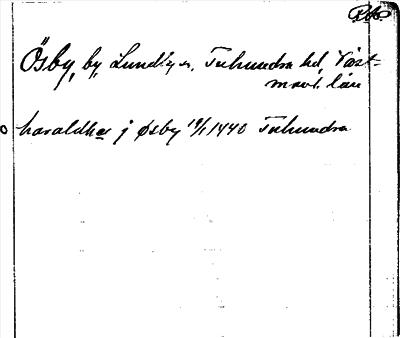 Ösby, by, Lundby s., Tuhundra hd, Väst-
manl. län
haraldh j Øsby 19/1 1440 Tuhundra